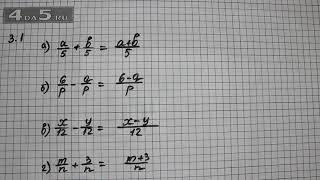 4DA5.RU
3.1
а) a/5 + b/5 = (a+b)/5
б) 6/p - a/p = (6-a)/p
в) x/12 - y/12 = (x-y)/12
г) m/n + 3/n = (m+3)/n